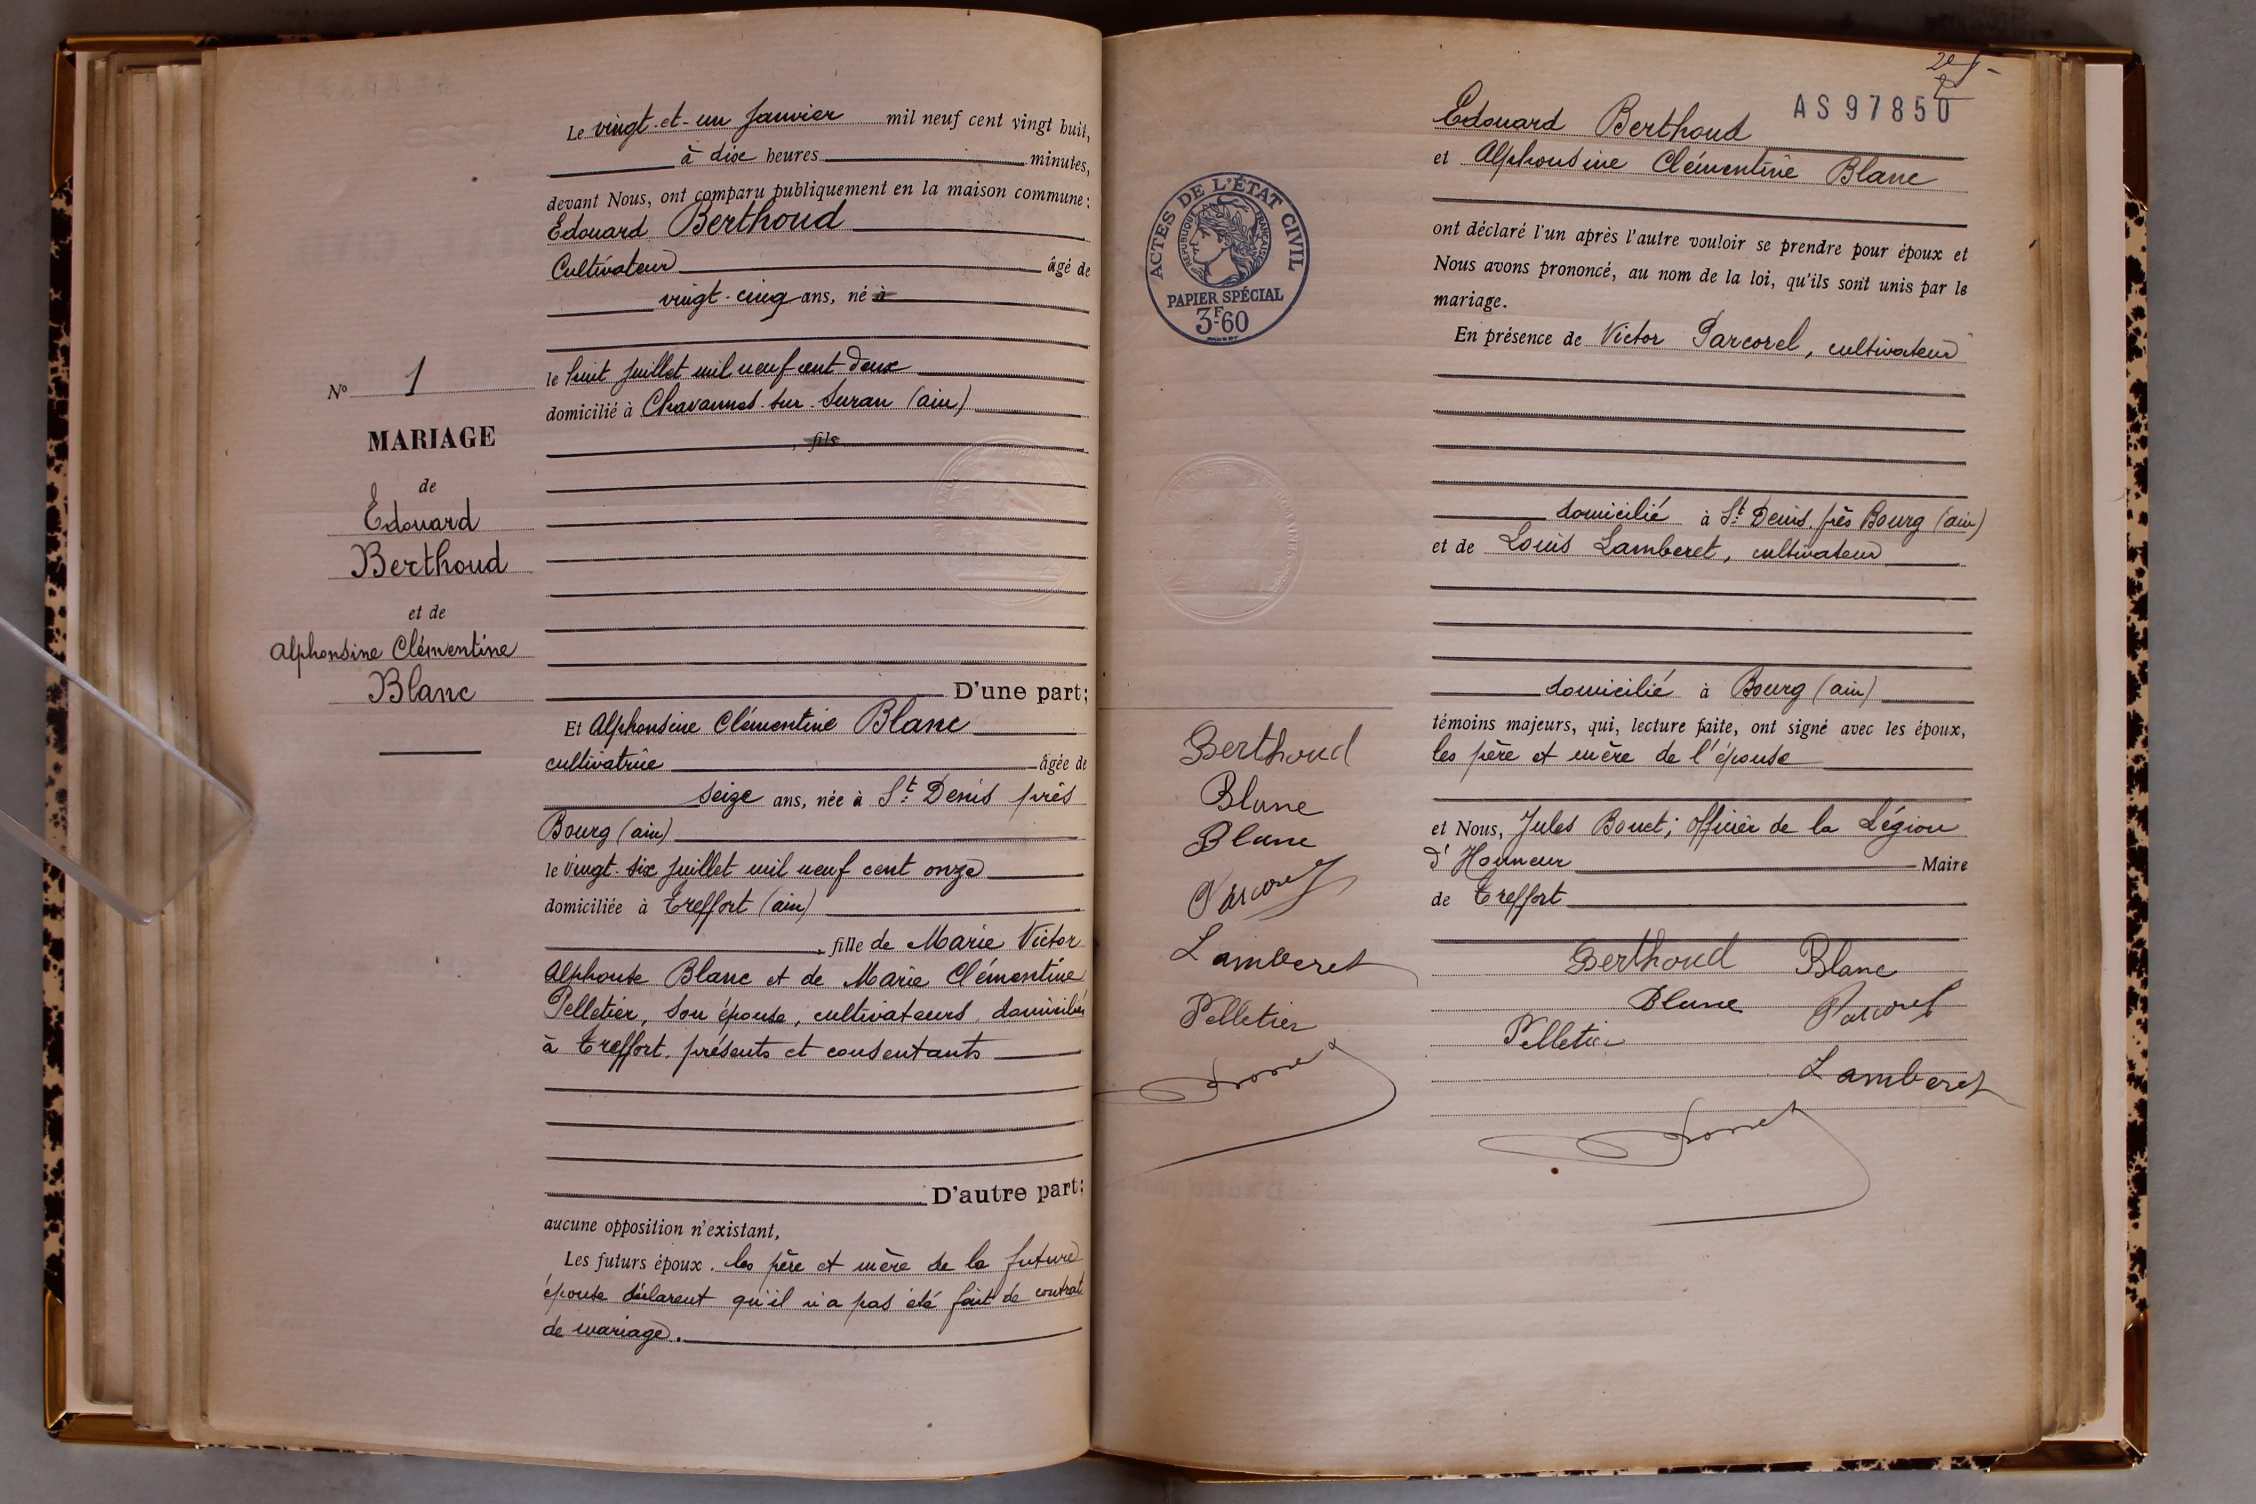 Le vingt-et-un Janvier mil neuf cent vingt huit,
à dix heures minutes,
devant Nous, ont comparu publiquement en la maison commune :
Edouard Berthoud
Cultivateur âgé de
vingt-cinq ans, né à
le huit Juillet mil neuf cent deux
domicilié à Chavannes-sur-Suran (ain)
, fils
No 1
MARIAGE
de
Edouard
Berthoud
et de
Alphonsine Clémentine
Blanc
D'une part;
Et Alphonsine Clémentine Blanc
cultivatrice âgée de
seize ans, née à St Denis près
Bourg (ain)
le vingt-six Juillet mil neuf cent onze
domiciliée à Treffort (ain)
, fille de Marie Victor
Alphonse Blanc et de Marie Clémentine
Pelletier, son épouse, cultivateurs, domiciliés
à Treffort, présents et consentants
D'autre part;
aucune opposition n'existant,
Les futurs époux. les père et mère de la future
épouse déclarent qu'il n'a pas été fait de contrat
de mariage.
AS97850
Edouard Berthoud
et Alphonsine Clémentine Blanc
ont déclaré l'un après l'autre vouloir se prendre pour époux et
Nous avons prononcé, au nom de la loi, qu'ils sont unis par le
mariage.
En présence de Victor Parcorel, cultivateur
domicilié à St Denis près Bourg (ain)
et de Louis Lamberet, cultivateur
domicilié à Bourg (ain)
témoins majeurs, qui, lecture faite, ont signé avec les époux,
les père et mère de l'épouse
et Nous, Jules Bonet; officier de la Légion
d'Honneur Maire
de Treffort
Berthoud Blanc
Blanc Parcorel
Pelletier
Lamberet
ACTES DE L'ÉTAT CIVIL
REPUBLIQUE FRANÇAISE
PAPIER SPÉCIAL
3F60
Berthoud
Blanc
Blanc
Parcorel
Lamberet
Pelletier